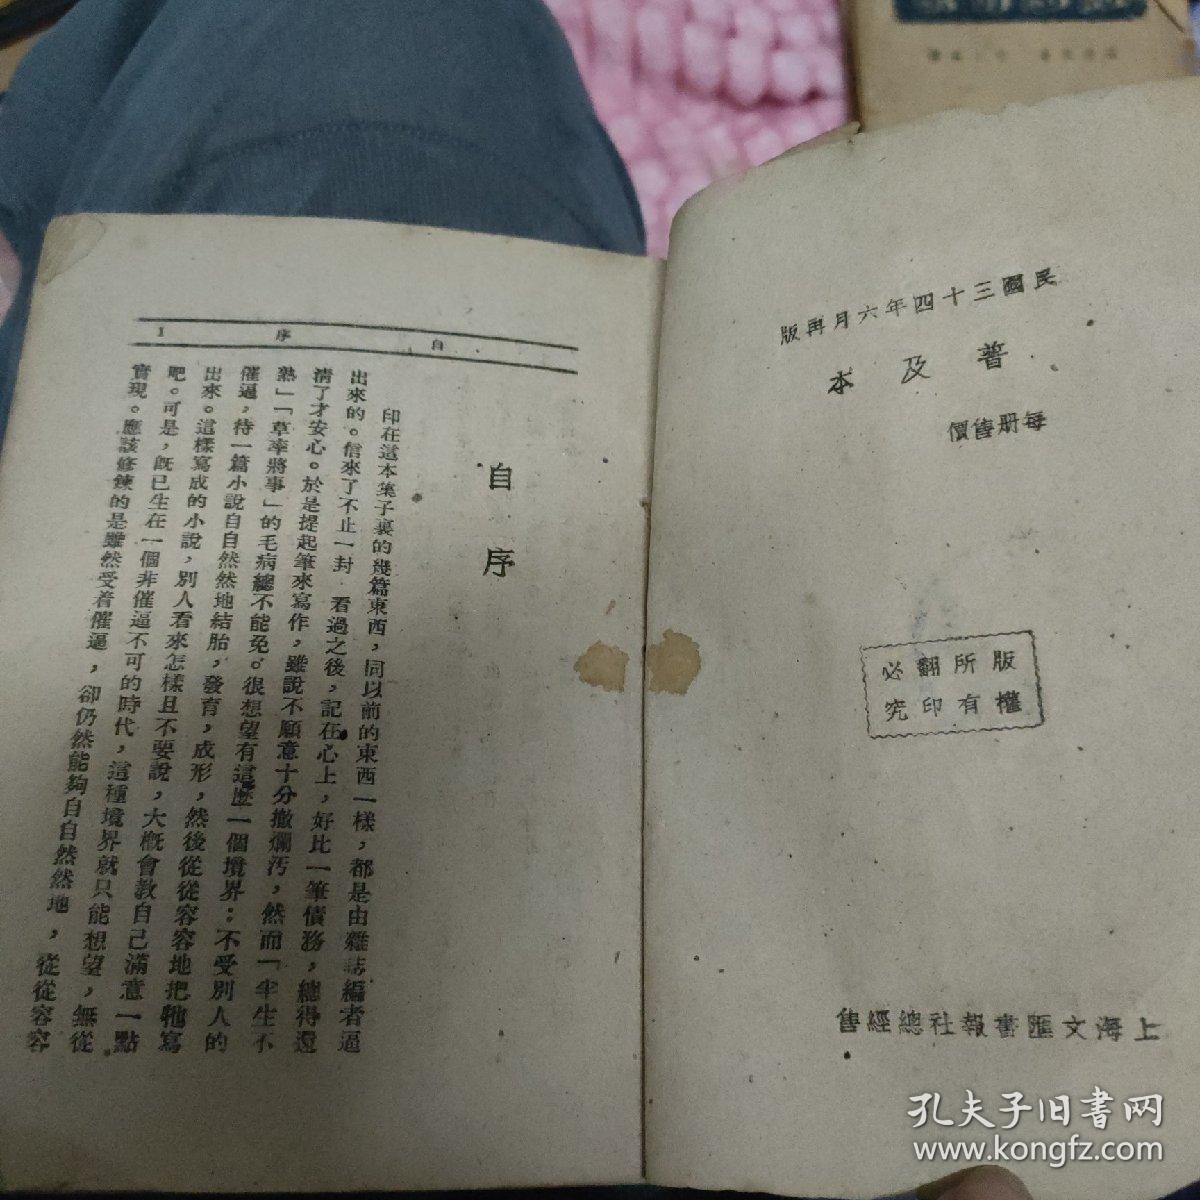 民國三十四年六月再版
普及本
每册售價
版權所有
翻印必究
上海文匯書報社總經售
自序 1
自序
印在這本集子裏的幾篇東西，同以前的東西一樣，都是由雜誌編者逼
出來的。信來了不止一封，看過之後，記在心上，好比一筆債務，總得還
清了才安心。於是提起筆來寫作，雖說不願意十分撒爛汚，然而「半生不
熟」「草率將事」的毛病總不能免。很想望有這麽一個境界：不受別人的
催逼，待一篇小說自自然然地結胎，發育，成形，然後從從容容地把牠寫
出來。這樣寫成的小說，別人看來怎樣且不要說，大概會教自己滿意一點
吧。可是，既已生在一個非催逼不可的時代，這種境界就只能想望，無從
實現。應該修鍊的是雖然受着催逼，卻仍然能夠自自然然地，從從容容
孔夫子旧书网
www.kongfz.com